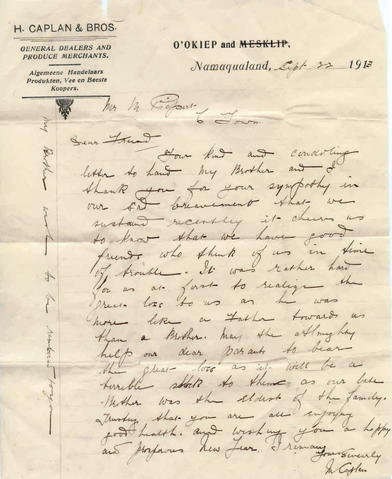 H. CAPLAN & BROS.
GENERAL DEALERS AND
PRODUCE MERCHANTS.
Algemeene Handelaars
Produkten, Vee en Beeste
Koopers.
O'OKIEP and MESKLIP,
Namaqualand, Sept 22 1913
Mr M
C Town
Dear Friend
Your kind and condoling
letter to hand My Brother and I
thank you for your sympathy in
our sad breivement that we
sustaind recently it cheers us
to know that we have good
friends who think of us in time
of trouble. It was rather hard
for us at first to realize the
great loss to us as he was
more like a Father towards us
than a Mother. May the allmighty
help our dear Parants to bear
the great loss as it will be a
terrible shok to them as our late
Mother was the eldest of the family.
Trusting that you are all enjoying
good health and wishing you a happy
and prosperous New Year. I remain
Yours Sincerely
M Caplan
My Brother wishes to be remembered to you